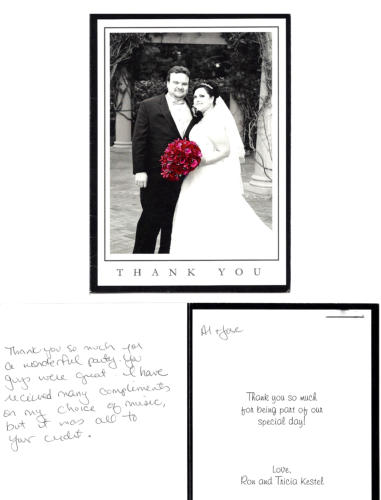 THANK YOU
Thank you so much for
a wonderful party. You
guys were great. I have
recieved many complements
on my choice of music,
but it was all to
your credit.
Al + Jove
Thank you so much
for being part of our
special day!
Love,
Ron and Tricia Kestel